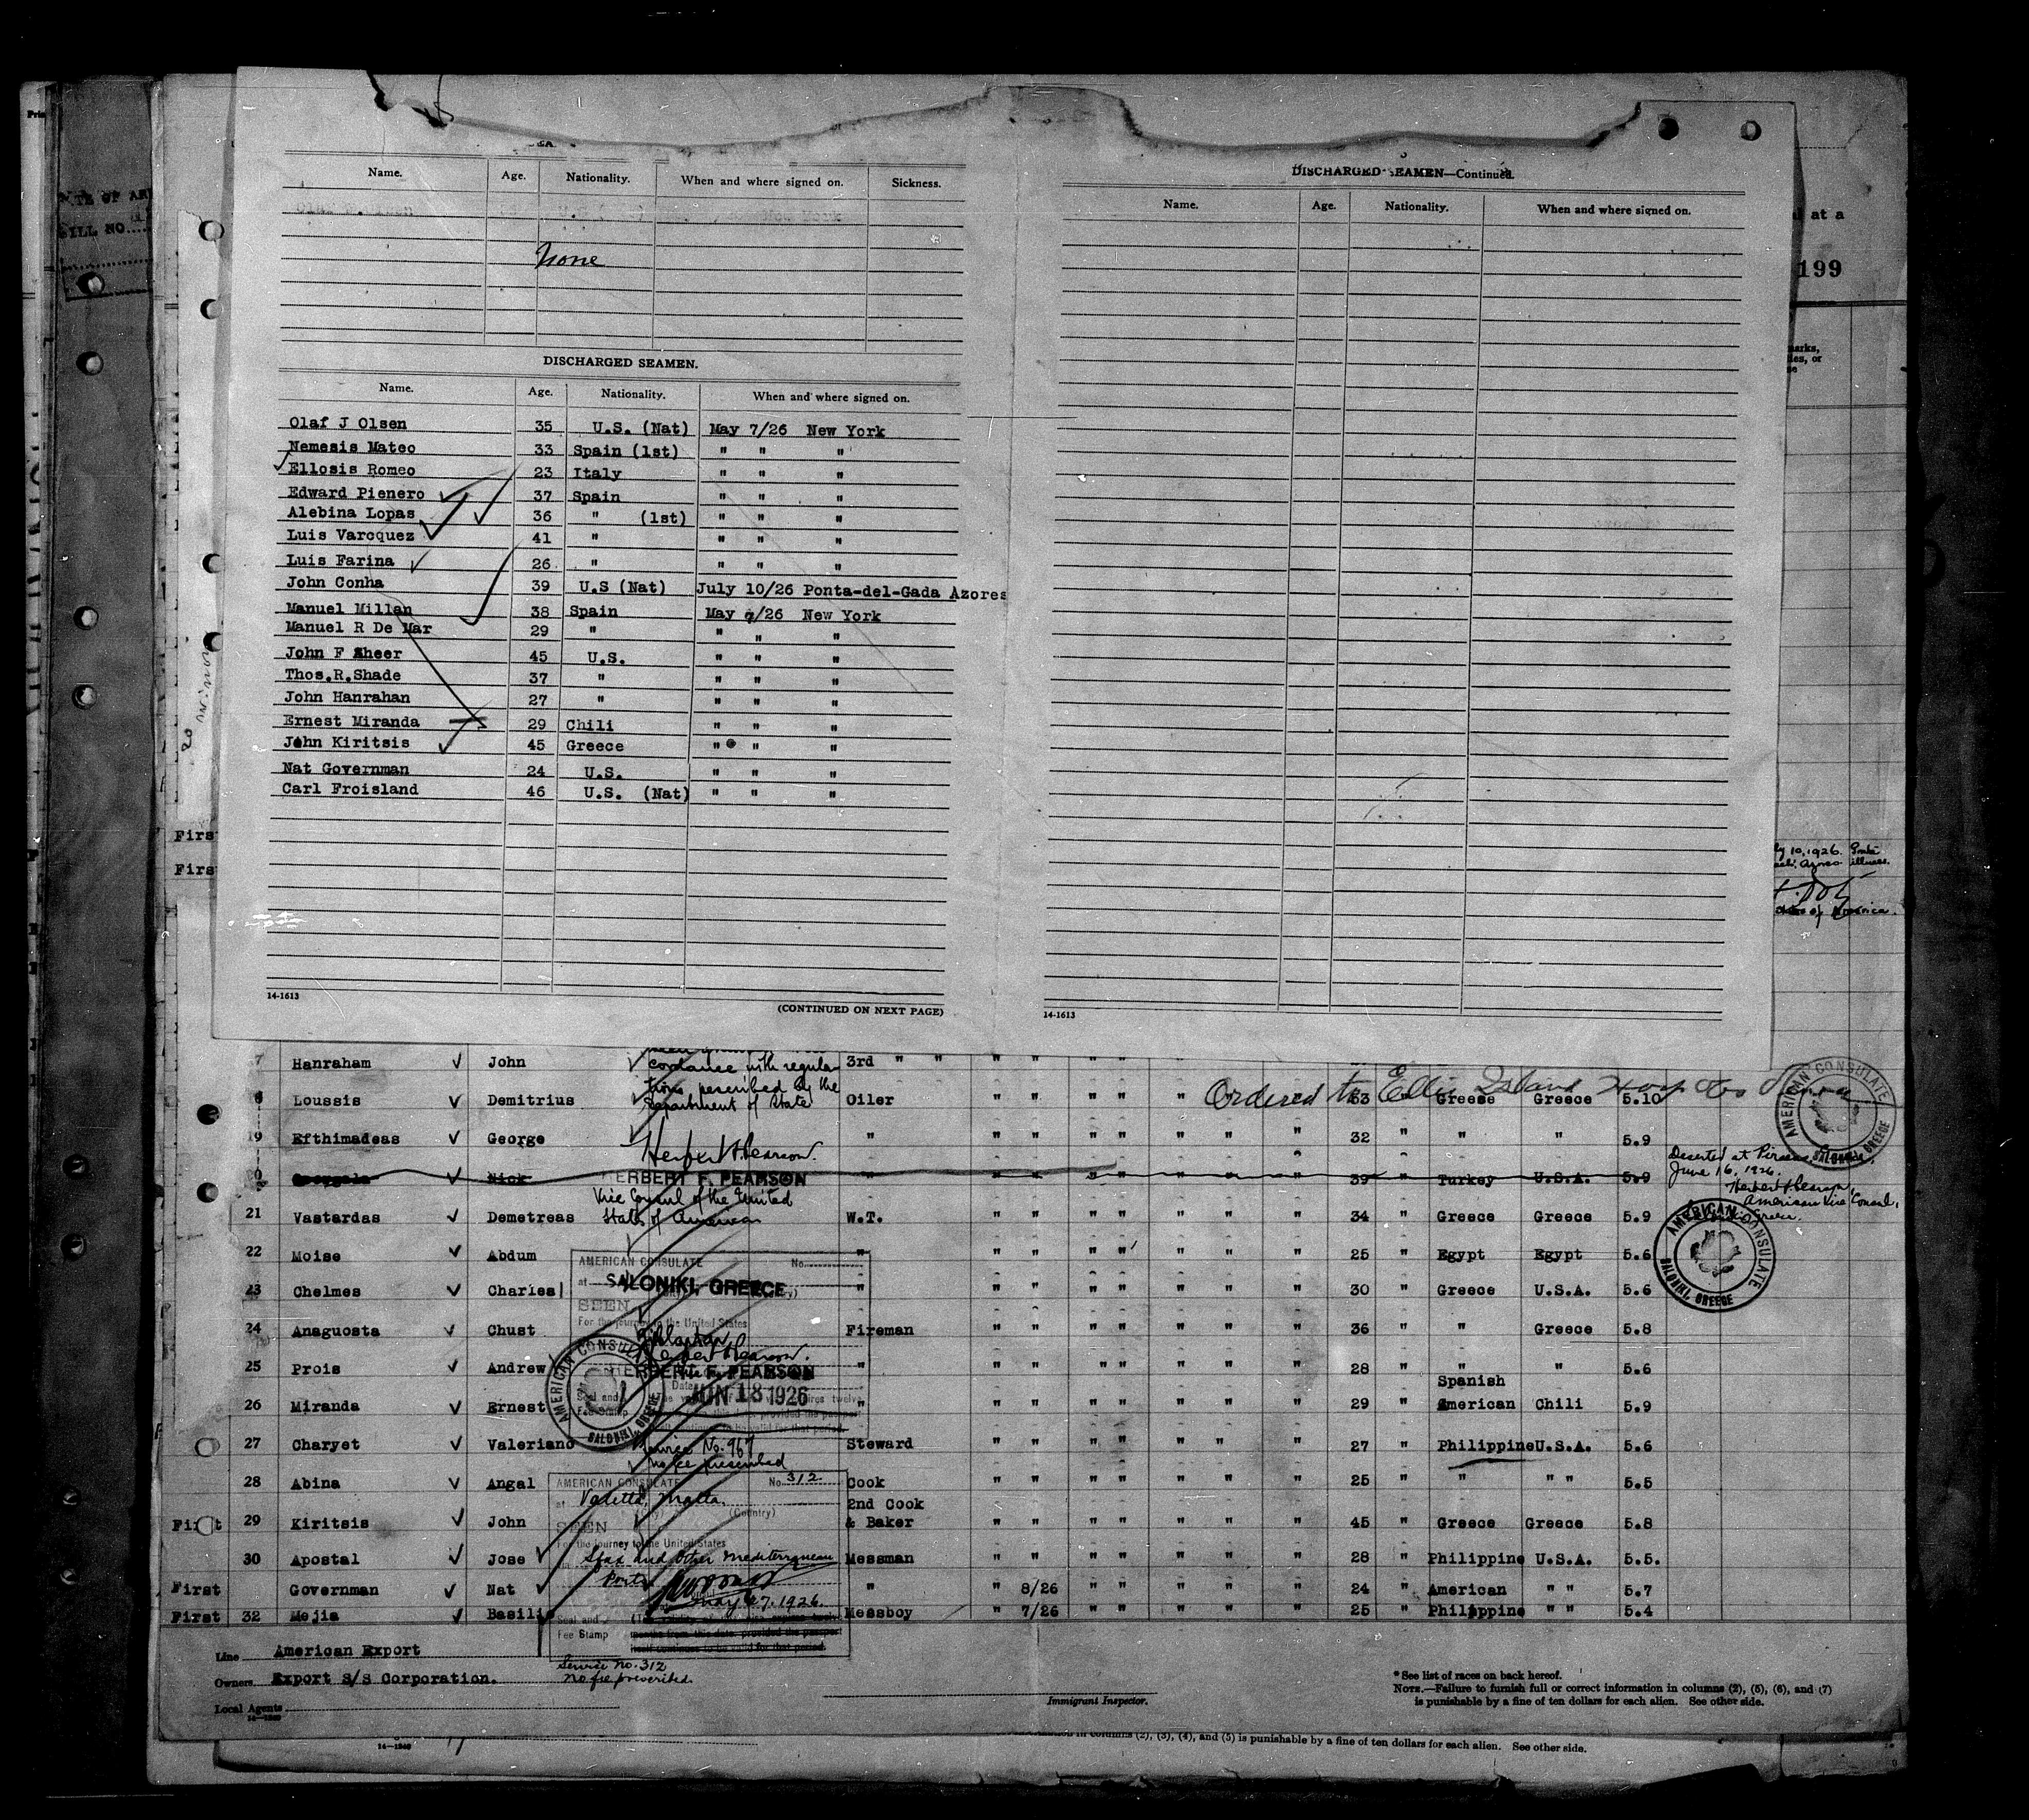 Name. Age. Nationality. When and where signed on. Sickness.
None
DISCHARGED SEAMEN.
Name. Age. Nationality. When and where signed on.
Olaf J Olsen 35 U.S. (Nat) May 7/26 New York
Nemesis Mateo 33 Spain (1st) " " "
Ellosis Romeo 23 Italy " " "
Edward Pienero 37 Spain " " "
Alebina Lopas 36 " (1st) " " "
Luis Varcquez 41 " " " "
Luis Farina 26 " " " "
John Conha 39 U.S (Nat) July 10/26 Ponta-del-Gada Azores
Manuel Millan 38 Spain May 9/26 New York
Manuel R De Mar 29 " " " "
John F Sheer 45 U.S. " " "
Thos.R.Shade 37 " " " "
John Hanrahan 27 " " " "
Ernest Miranda 29 Chili " " "
John Kiritsis 45 Greece " " "
Nat Governman 24 U.S. " " "
Carl Froisland 46 U.S. (Nat) " " "
14-1613
(CONTINUED ON NEXT PAGE)
DISCHARGED SEAMEN—Continued.
Name. Age. Nationality. When and where signed on.
14-1613
at a
199
First
First
10, 1926.
illness.
of America.
Hanraham John 3rd " " " " " " "
cordance with regula-
tions prescribed by the
Department of State
Ordered to Ellis Island
Loussis Demitrius Oiler " " " " " 33 " Greese Greece 5.10
19 Efthimadeas George " " " " " " " " 32 " " " 5.9
Herbert F. Pearson
Nick " 39 " Turkey U.S.A. 5.9
HERBERT F. PEARSON
Vice Consul of the United
States of America
Deserted at Piraeus,
June 16, 1926.
Herbert F. Pearson,
American Vice Consul,
21 Vastardas Demetreas W.T. " " " " " " " 34 " Greece Greece 5.9
22 Moise Abdum " " " " " " " " 25 " Egypt Egypt 5.6
23 Chelmes Charles " " " " " " " " 30 " Greece U.S.A. 5.6
24 Anaguosta Chust Fireman " " " " " " " 36 " " Greece 5.8
25 Prois Andrew " " " " " " " " 28 " " " 5.6
26 Miranda Ernest " " " " " " " " 29 " Spanish American Chili 5.9
27 Charyet Valeriano Steward " " " " " " " 27 " Philippine U.S.A. 5.6
28 Abina Angal Cook " " " " " " " 25 " " " " 5.5
First 29 Kiritsis John 2nd Cook & Baker " " " " " " " 45 " Greece Greece 5.8
30 Apostal Jose Messman " " " " " " " 28 " Philippine U.S.A. 5.5.
First Governman Nat " " 8/26 " " " " " 24 " American " " 5.7
First 32 Mejia Basili Messboy " 7/26 " " " " " 25 " Philippine " " 5.4
AMERICAN CONSULATE No.
at SALONIKI, GREECE
SEEN
For the journey to the United States
HERBERT F. PEARSON
JUN 18 1926
Service No. 967
No fee prescribed
AMERICAN CONSULATE SALONIKI, GREECE
AMERICAN CONSULATE SALONIKI, GREECE
AMERICAN CONSULATE SALONIKI, GREECE
AMERICAN CONSULATE No. 312
at Valetta, Malta.
(Country)
SEEN
For the journey to the United States
Sfax and other Mediterranean
Ports
May 27, 1926.
Seal and
Fee Stamp
months from this date, provided the passport
itself continues to be valid for that period.
Service No. 312
No fee prescribed.
Line American Export
Owners Export S/S Corporation.
Local Agents
Immigrant Inspector.
* See list of races on back hereof.
NOTE.—Failure to furnish full or correct information in columns (2), (5), (6), and (7)
is punishable by a fine of ten dollars for each alien. See other side.
in columns (2), (3), (4), and (5) is punishable by a fine of ten dollars for each alien. See other side.